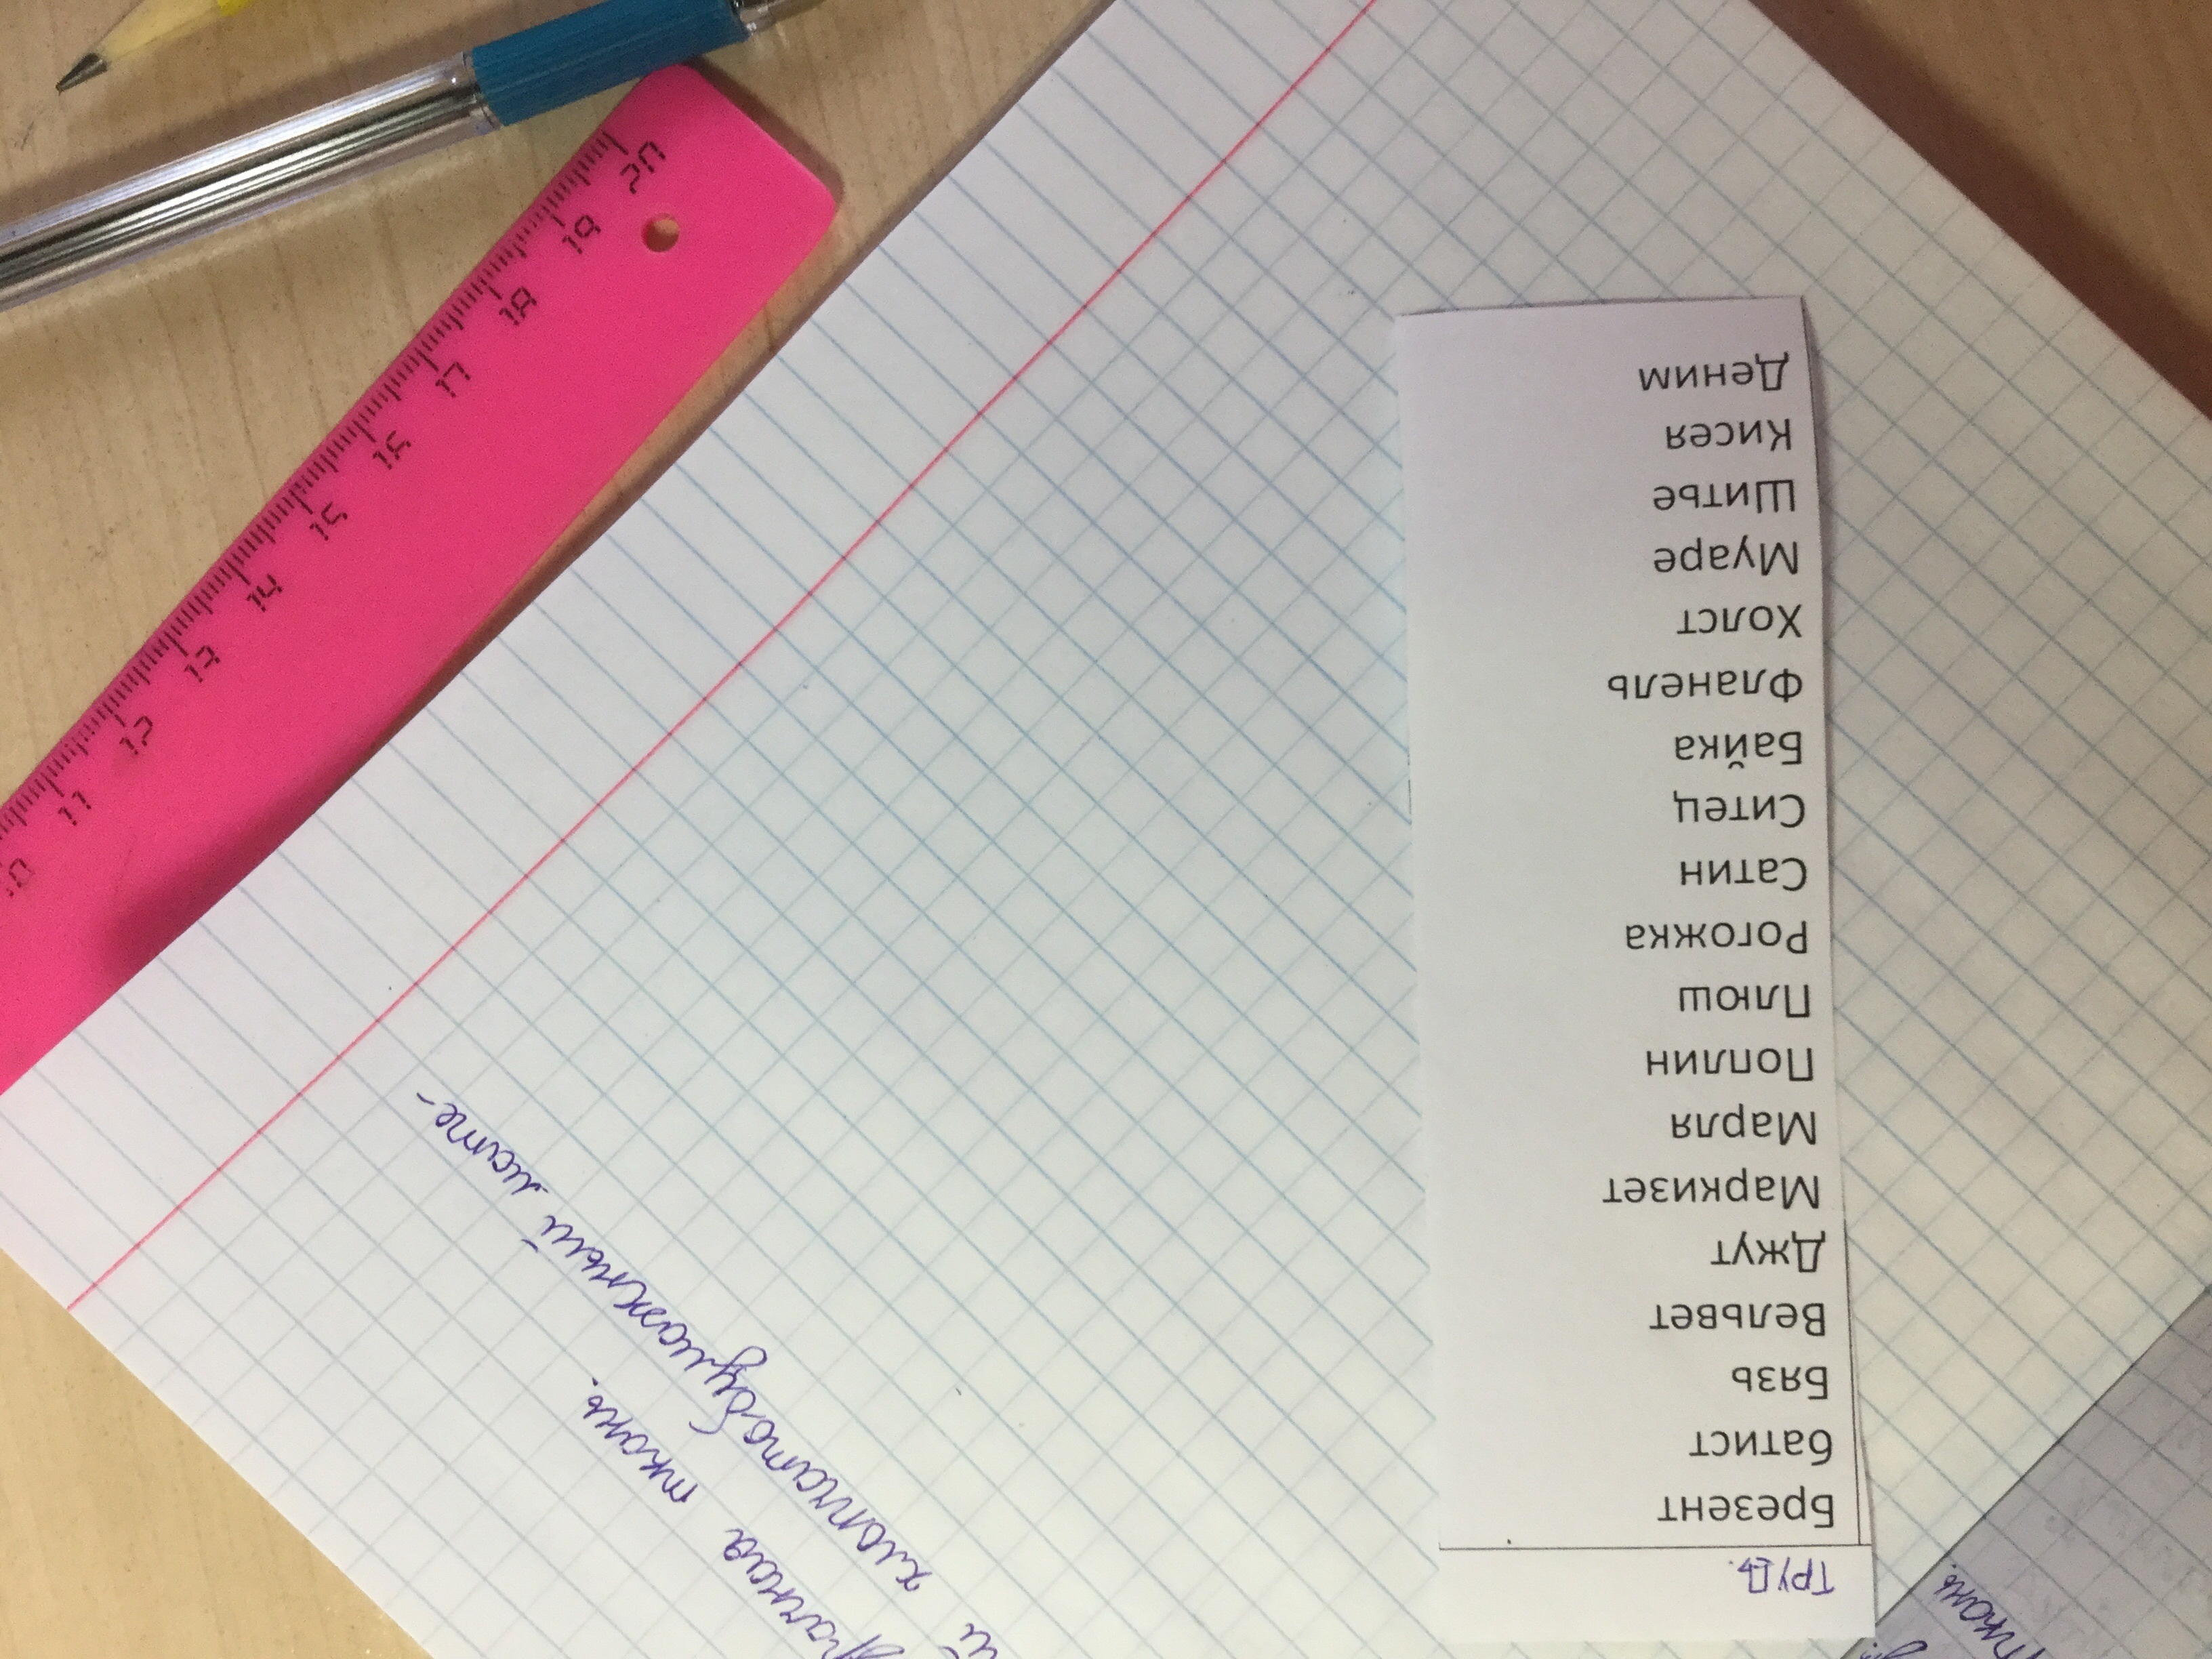 ТРУД.
Брезент
батист
Бязь
Вельвет
Джут
Маркизет
Марля
Поплин
Плюш
Рогожка
Сатин
Ситец
Байка
Фланель
Холст
Муаре
Шитье
Кисея
Деним
ткань.
хлопчатобумажный мате-
ткань.
11
12
13
14
15
16
17
18
19
20